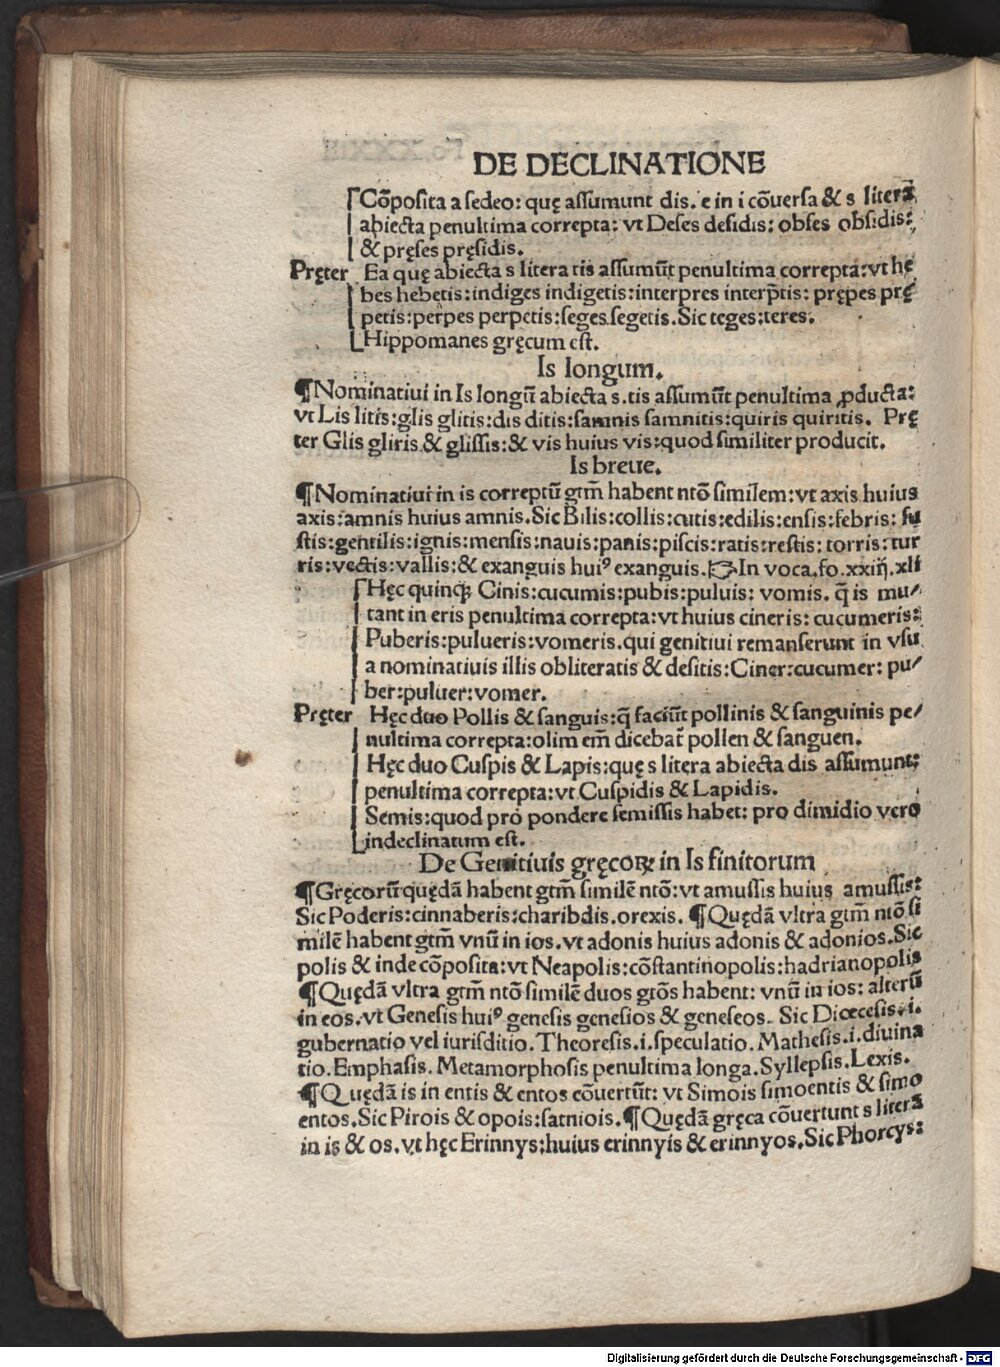 DE DECLINATIONE
Cōposita a sedeo: quę assumunt dis. e in i cōuersa & s literā
abiecta penultima correpta: vt Deses desidis: obses obsidis:
& pręses pręsidis.
Pręter Ea quę abiecta s litera tis assumūt penultima correpta: vt hę
bes hebetis: indiges indigetis: interpres interp̄tis: prępes prę
petis: perpes perpetis: seges segetis. Sic teges: teres.
Hippomanes gręcum est.
Is longum.
¶Nominatiui in Is longū abiecta s. tis assumūt penultima ꝓducta:
vt Lis litis: glis glitis: dis ditis: samnis samnitis: quiris quiritis. Prę
ter Glis gliris & glissis: & vis huius vis: quod similiter producit.
Is breue.
¶Nominatiui in is correptū gtm̄ habent ntō similem: vt axis huius
axis: amnis huius amnis. Sic Bilis: collis: cutis: edilis: ensis: febris: fu
stis: gentilis: ignis: mensis: nauis: panis: piscis: ratis: restis: torris: tur
ris: vectis: vallis: & exanguis huiꝰ exanguis. ☞In voca. fo. xxiij. xli
Hęc quinq; Cinis: cucumis: pubis: puluis: vomis. q̄ is mu⸗
tant in eris penultima correpta: vt huius cineris: cucumeris:
Puberis: pulueris: vomeris. qui genitiui remanserunt in vsu
a nominatiuis illis obliteratis & desitis: Ciner: cucumer: pu⸗
ber: puluer: vomer.
Pręter Hęc duo Pollis & sanguis: q̄ faciūt pollinis & sanguinis pe⸗
nultima correpta: olim em̄ dicebat̄ pollen & sanguen.
Hęc duo Cuspis & Lapis: quę s litera abiecta dis assumunt:
penultima correpta: vt Cuspidis & Lapidis.
Semis: quod pro pondere semissis habet: pro dimidio vero
indeclinatum est.
De Genitiuis gręcoꝝ in Is finitorum
¶Gręcorū quędā habent gtm̄ similē ntō: vt amussis huius amussis:
Sic Poderis: cinnaberis: charibdis. orexis. ¶Quędā vltra gtm̄ ntō si
milē habent gtm̄ vnū in ios. vt adonis huius adonis & adonios. Sic
polis & inde cōposita: vt Neapolis: cōstantinopolis: hadrianopolis
¶Quędā vltra gtm̄ ntō similē duos gtōs habent: vnū in ios: alterū
in eos. vt Genesis huiꝰ genesis genesios & geneseos. Sic Diœcesis. i.
gubernatio vel iurisditio. Theoresis. i. speculatio. Mathesis. i. diuina
tio. Emphasis. Metamorphosis penultima longa. Syllepsis. Lexis.
¶Quędā is in entis & entos cōuertūt: vt Simois simoentis & simo
entos. Sic Pirois & opois: satniois. ¶Quędā gręca cōuertunt s literā
in is & os. vt hęc Erinnys: huius erinnyis & erinnyos. Sic Phorcys:
Digitalisierung gefördert durch die Deutsche Forschungsgemeinschaft - DFG